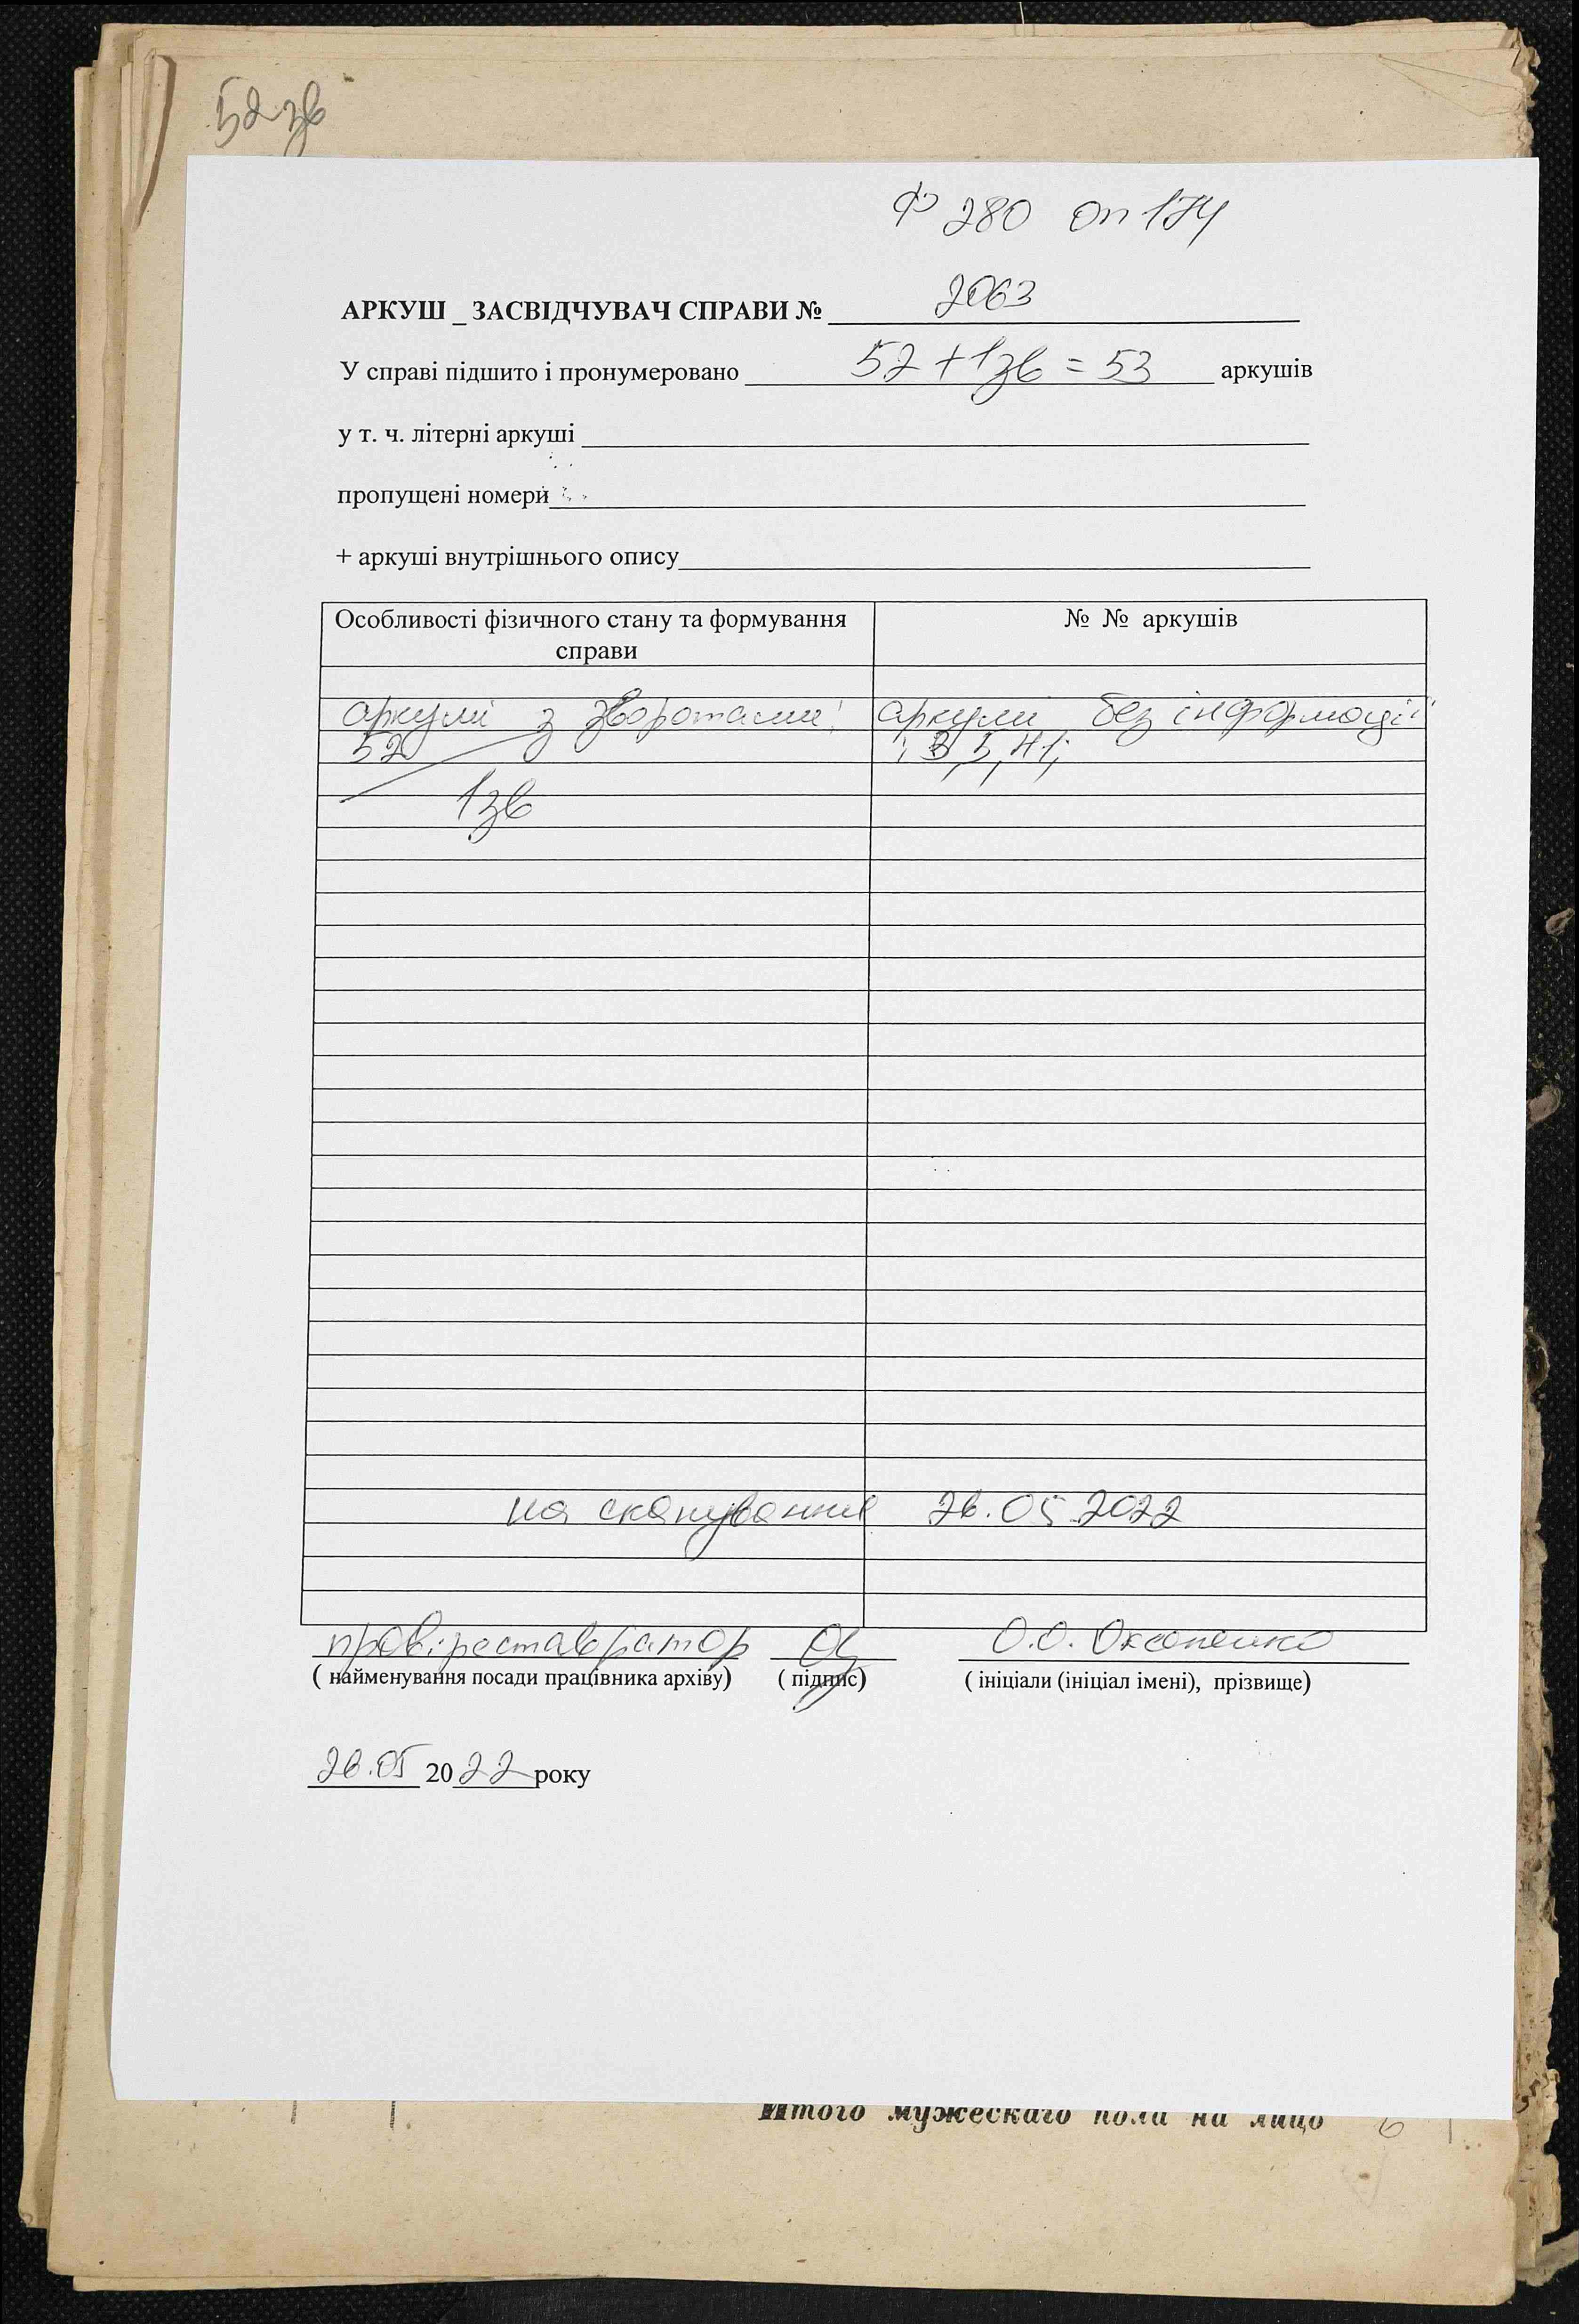 52зв
Ф 280 оп 174
АРКУШ _ ЗАСВІДЧУВАЧ СПРАВИ № 2063
У справі підшито і пронумеровано 52 + 1зв = 53 аркушів
у т. ч. літерні аркуші
пропущені номери
+ аркуші внутрішнього опису
Особливості фізичного стану та формування справи
№ № аркушів
аркуші з зворотами:
52
1зв
аркуші без інформації
: 3, 5, 41;
на сканування 26.05.2022
пров. реставратор
О.О. Оксененко
( найменування посади працівника архіву) ( підпис) ( ініціали (ініціал імені), прізвище)
26.05 2022 року
Итого мужескаго пола на лицо 6